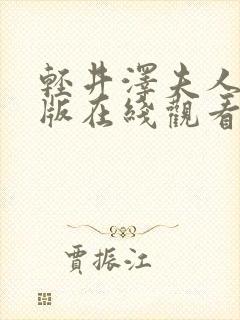 輕井澤夫人
版在綫觀看
賈振江